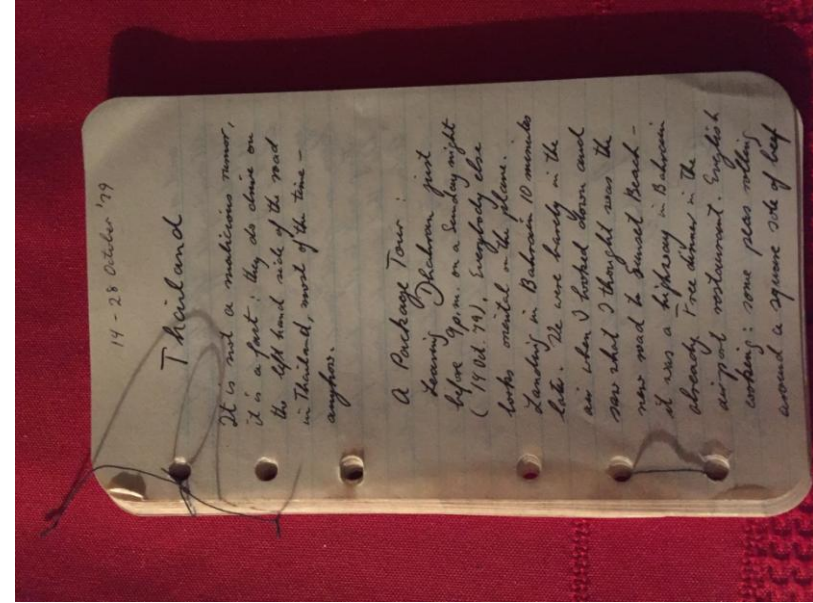 14-28 October '79
Thailand
It is not a malicious rumor,
it is a fact: they do drive on
the left hand side of the road
in Thailand, most of the time –
anyhow.
A Package Tour:
Leaving Dhahran just
before 9 p.m. on a Sunday night
(14 Oct. '79). Everybody else
looks oriental on the plane.
Landing in Bahrain 10 minutes
later. We were barely in the
air when I looked down and
saw what I thought was the
new road to Sunset Beach –
it was a highway in Bahrain
already. Free dinner in the
airport restaurant. English
cooking: some peas rolling
around a square sole of beef